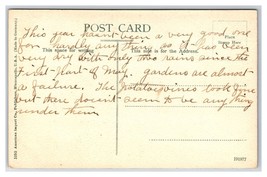 POST CARD
This year hasn't been a very good one
for hardly any thing as it has been
very dry with only two rains since the
first part of May. gardens are almost
a failure. The potatoe vines look fine
but there doesn't seem to be any thing
under them
This space for writing
This side is for the Address.